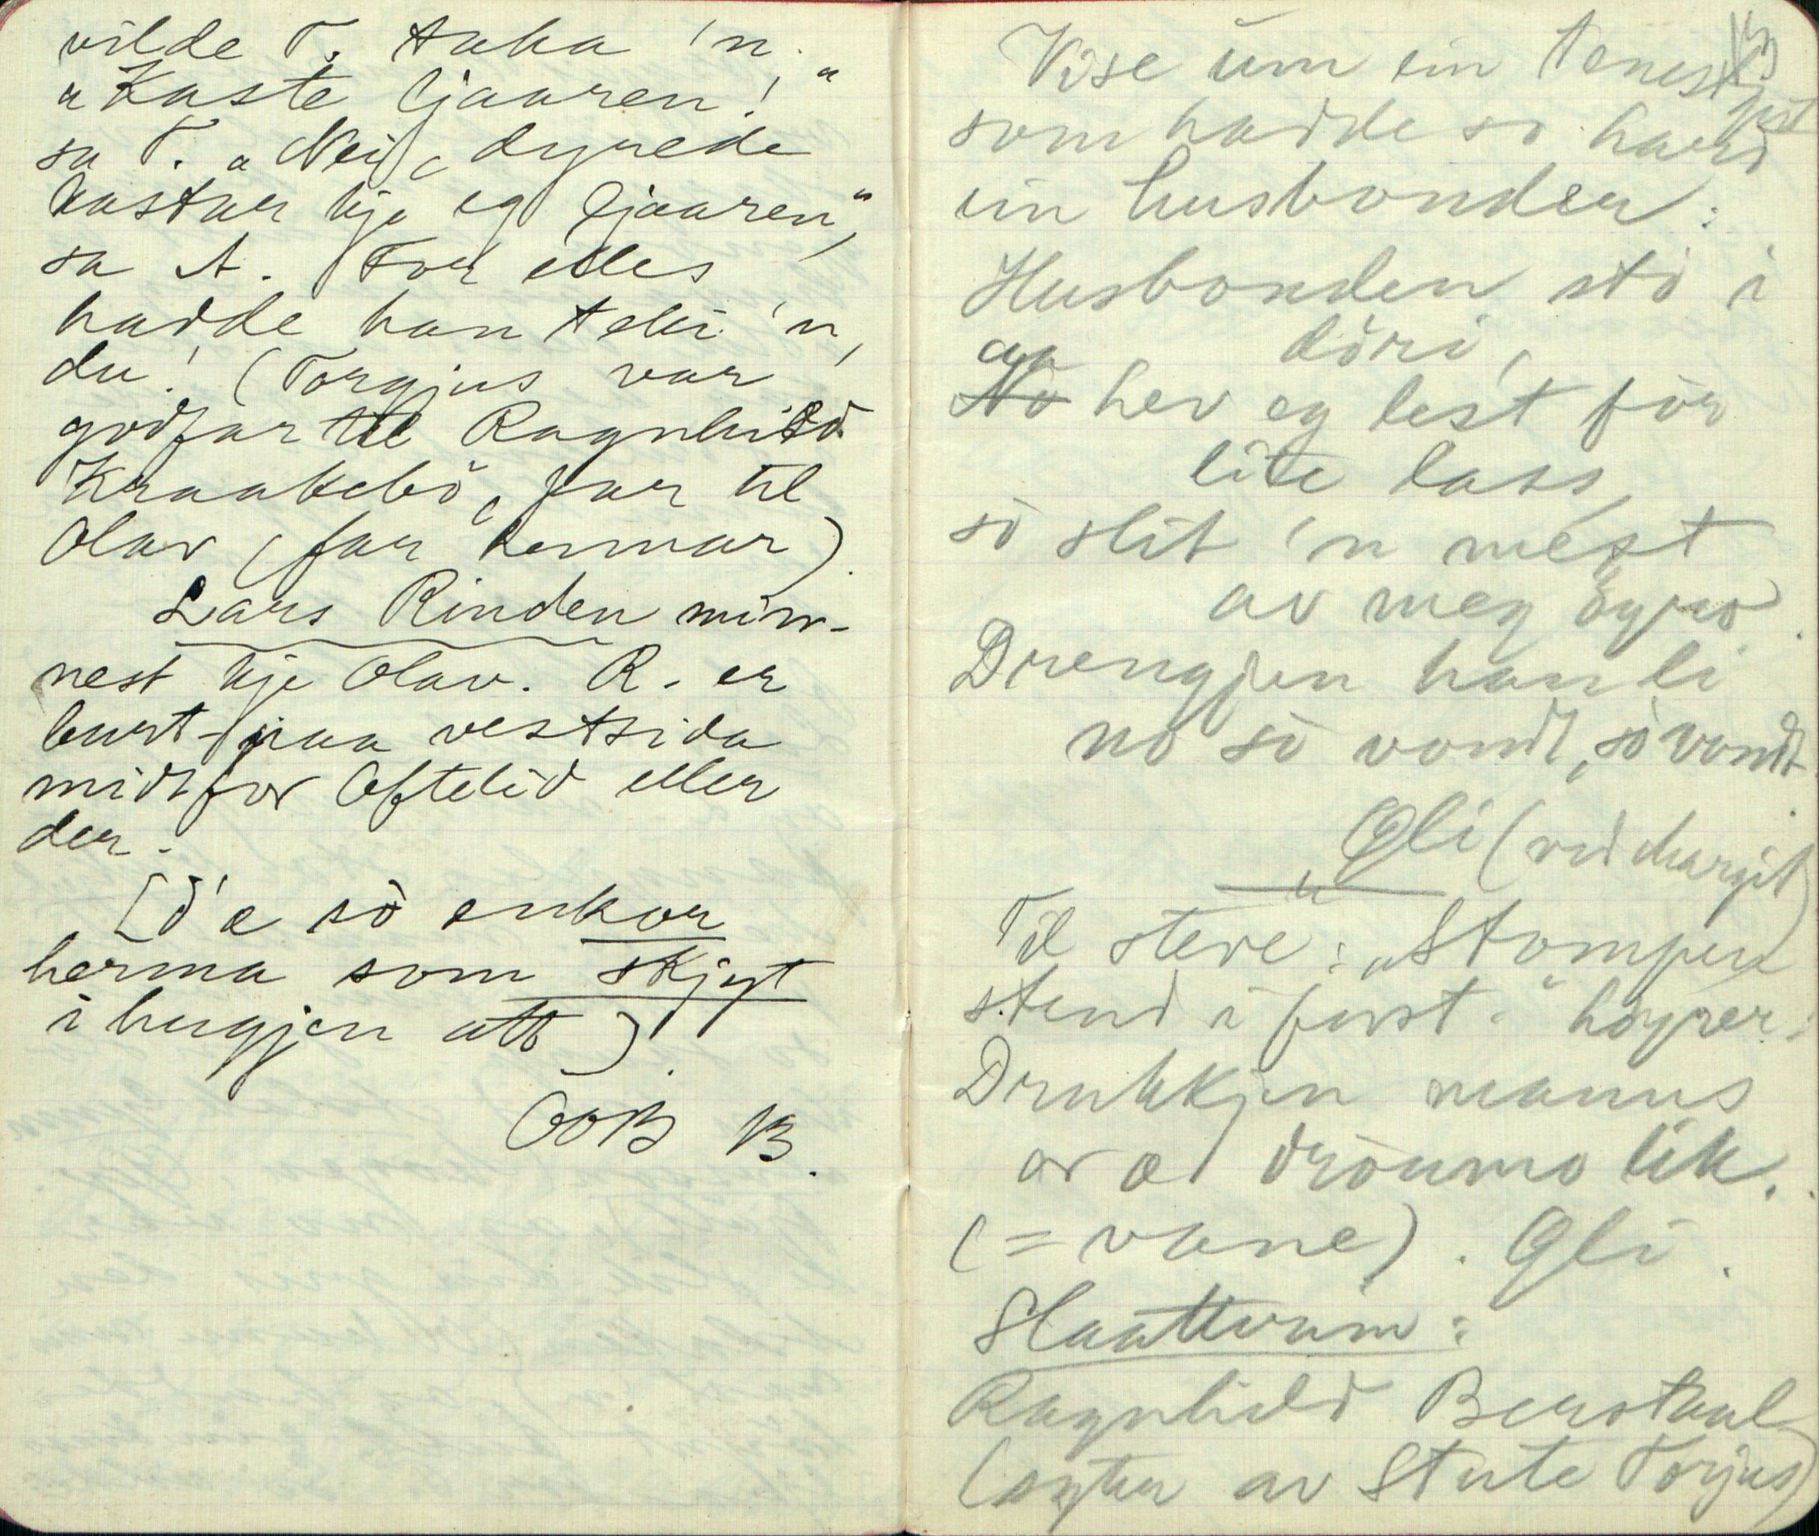 vilde T. taka 'n.
"Kaste ljaaren!"
sa T. "Nei, dyrede
kastar kje eg ljaaren",
sa A. For elles
hadde han teki 'n,
du! (Torgjus var
godfar til Ragnhild
Kraakebö, far til
Olav (far hennar).
Lars Rinden min-
nest kje Olav. R. er
burt-paa vestsida
midt for Oftelid eller
der.
[d'æ sò enkor
herma som skjyt
i hugjen att).
OOB B.
Vise um ein tenest
som hadde so hard
ein husbonder:
Husbonden sto i
döri,
aa
No hev eg lest för
lite lass,
sò slit 'n mest
av meg ögno.
Drengjen han li
no sò vondt, sò vondt
Gli (ved Margit)
Til steve: "Stompen
stend i forst" höyrer:
Drukkjen manns
or æ dröumo lik.
(= vane). Gli.
Slaattvum:
Ragnhild Berstaul
(syster av Stute Torjus)